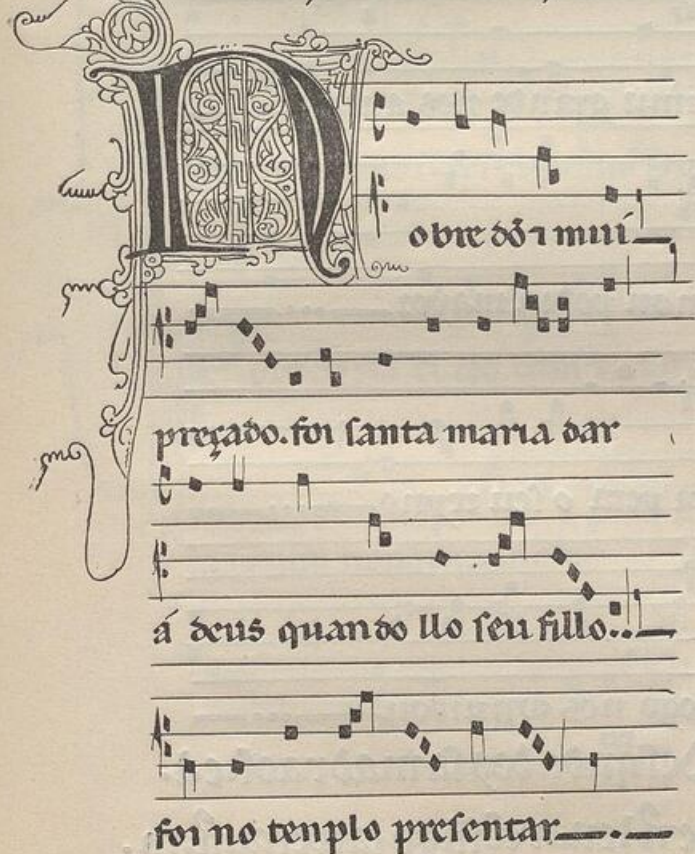 Nobre dõ ⁊ mui
preçado. foi santa maria dar
á deus quando llo seu fillo..
foi no tenplo presentar